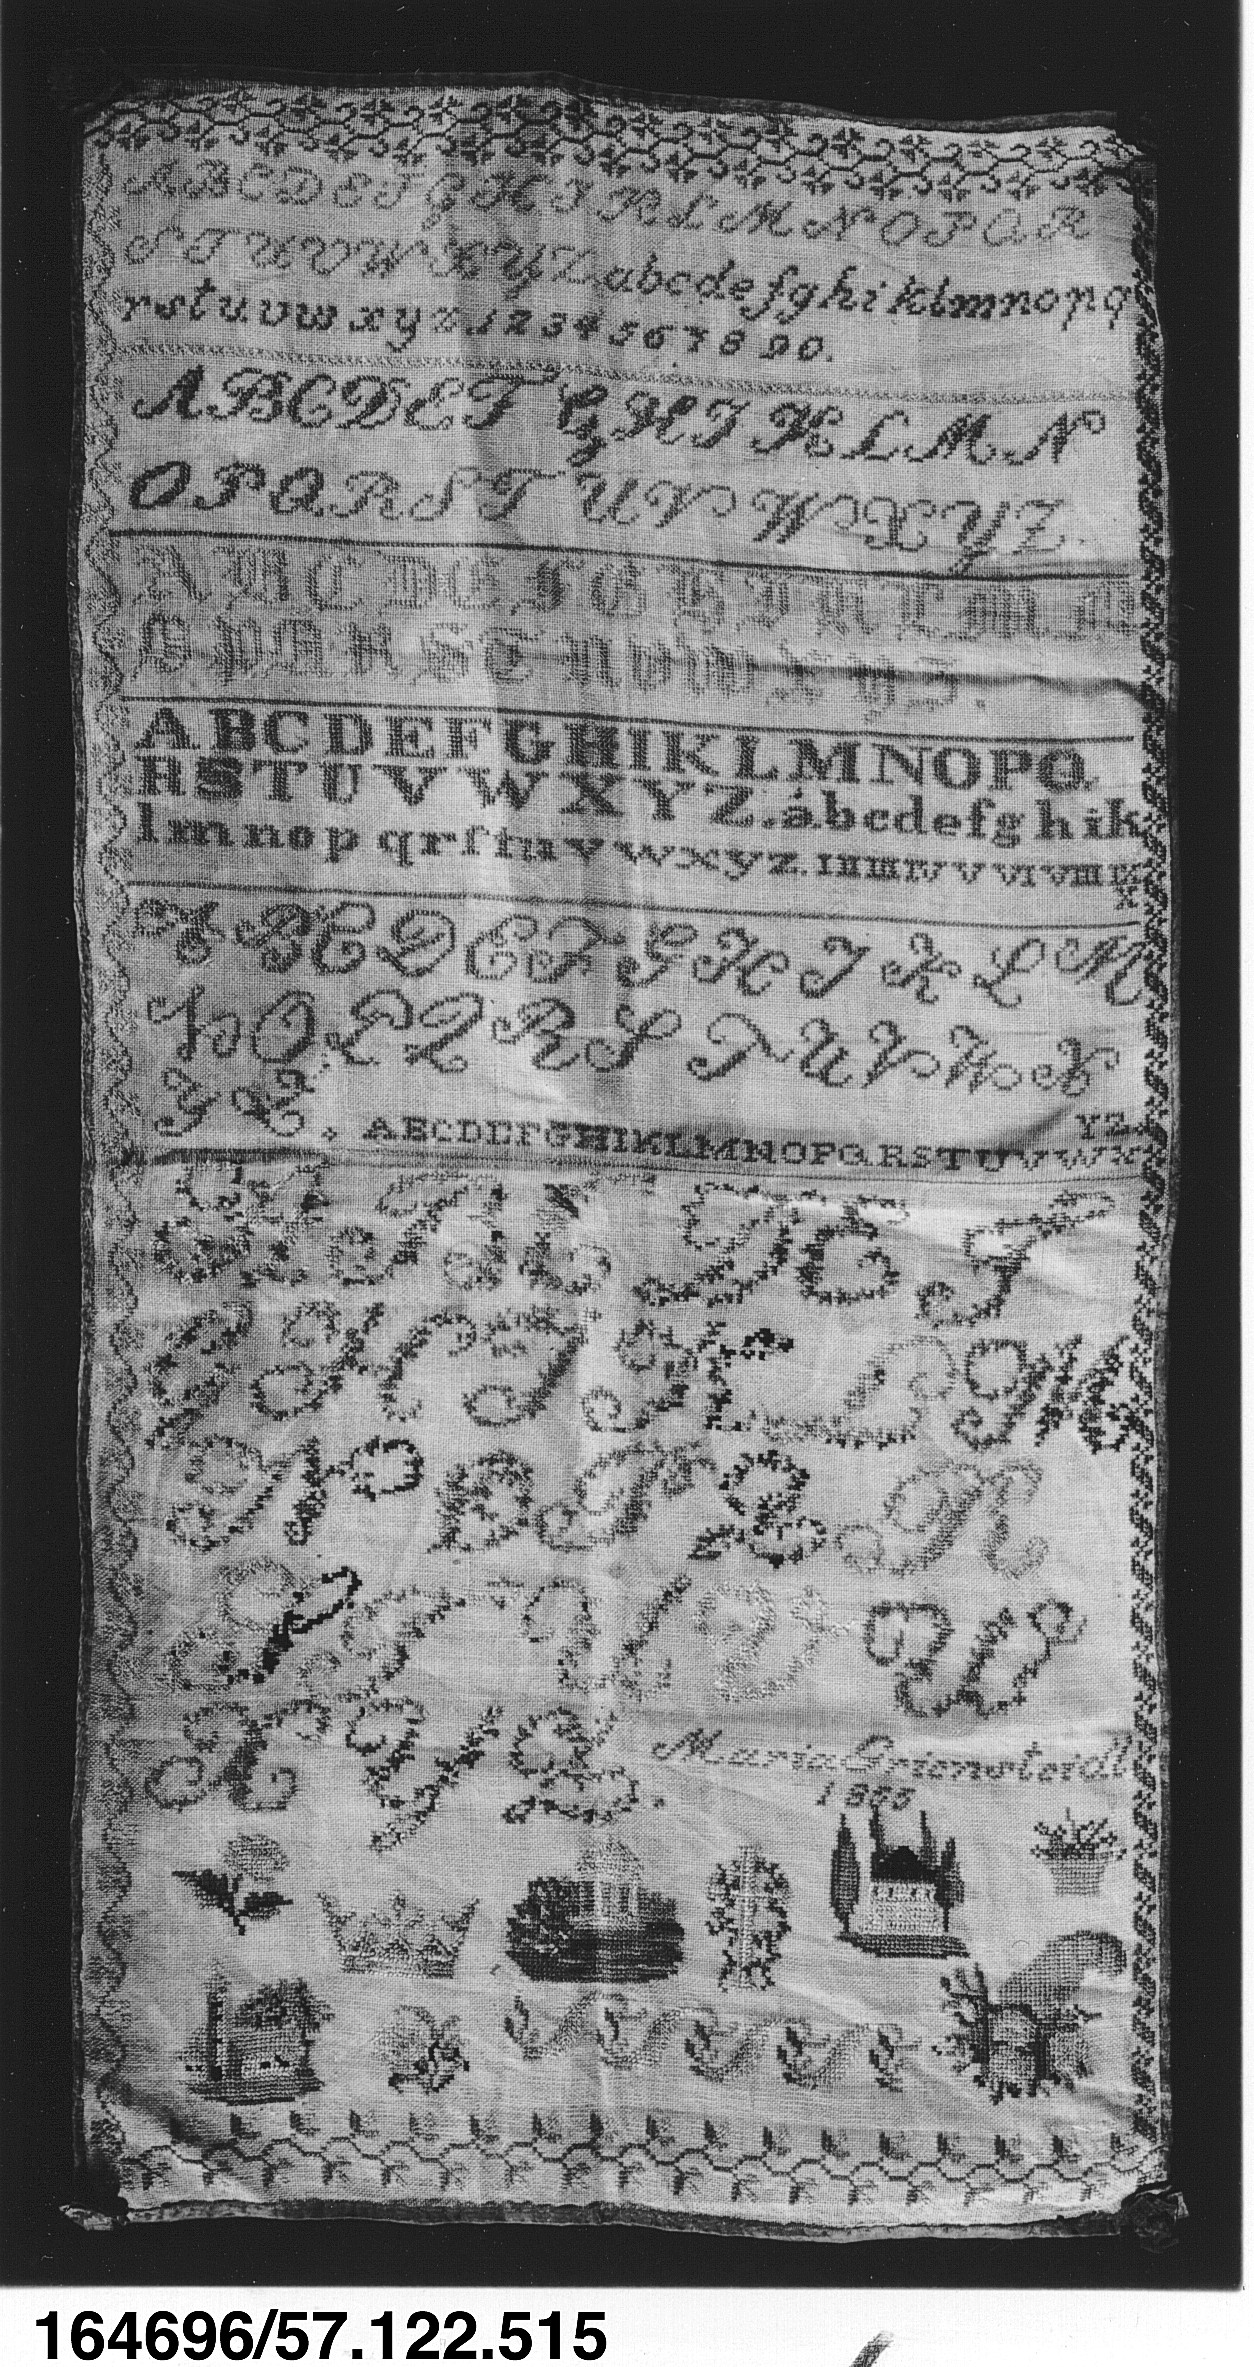 ABCDEFGHIKLMNOPQR
STUVWXYZabcdefghiklmnopq
rstuvwxyz1234567890.
ABCDEFGHIKLMN
OPQRSTUVWXYZ.
ABCDEFGHIKLMN
OPQRSTUVWXYZ.
ABCDEFGHIKLMNOPQ
RSTUVWXYZ.abcdefghik
lmnopqrſtuvwxyz.
ABCDEFGHIKLM
NOPQRSTUVWX
YZ.
YZ.
ABCDEFGHIKLMNOPQRSTUVWX
ABCDEF
GHIKLM
NOPQR
STUVW
XYZ.
Maria Griensteidl
164696/57.122.515